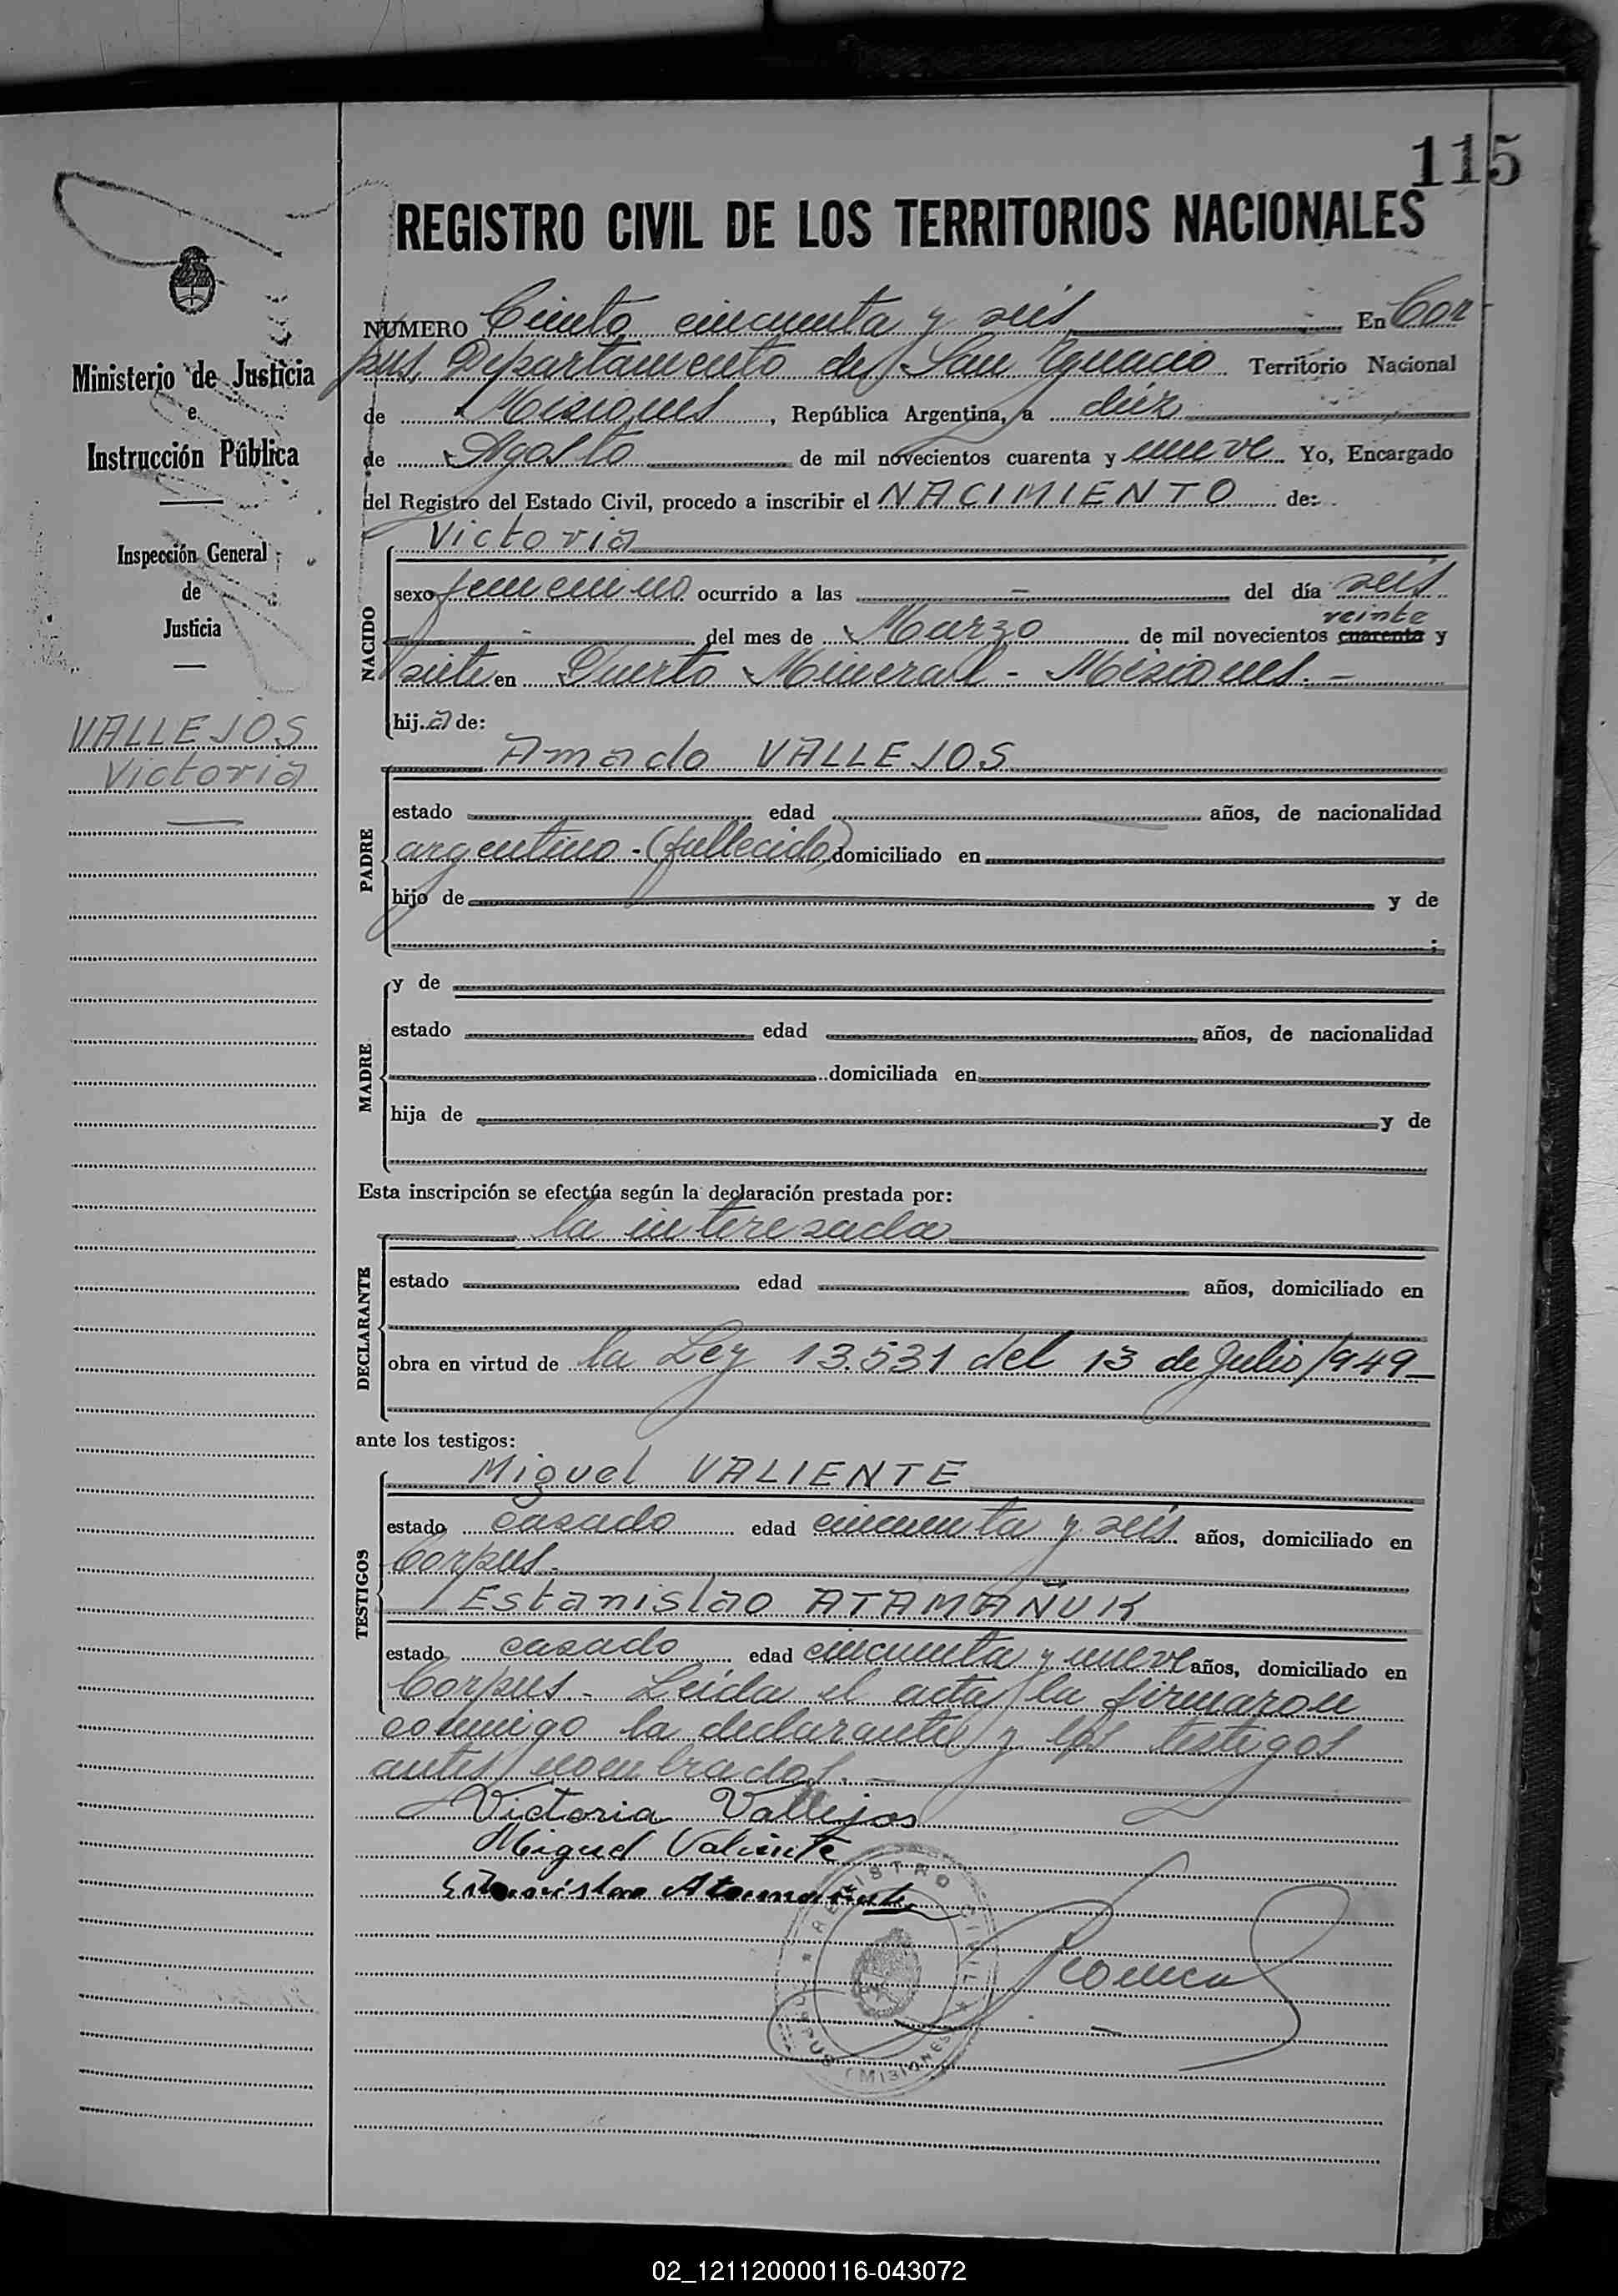 115
REGISTRO CIVIL DE LOS TERRITORIOS NACIONALES
Ministerio de Justicia
e
Instrucción Pública
Inspección General
de
Justicia
VALLEJOS
Victoria
NUMERO Ciento cincuenta y seis En Cor-
pus, Departamento de San Ignacio Territorio Nacional
de Misiones, República Argentina, a diéz
de Agosto de mil novecientos cuarenta y nueve Yo, Encargado
del Registro del Estado Civil, procedo a inscribir el NACIMIENTO de:
Victoria
NACIDO
sexo femenino ocurrido a las - del día seis
veinte
del mes de Marzo de mil novecientos cuarenta y
siete en Puerto Mineral - Misiones. -
hij a de:
Amado VALLEJOS
PADRE
estado edad años, de nacionalidad
argentino - (fallecido) domiciliado en
hijo de y de
;
MADRE
y de
estado edad años, de nacionalidad
domiciliada en
hija de y de
Esta inscripción se efectúa según la declaración prestada por:
la interesada
DECLARANTE
estado edad años, domiciliado en
obra en virtud de la Ley 13.531 del 13 de Julio/949
ante los testigos:
Miguel VALIENTE
TESTIGOS
estado casado edad cincuenta y seis años, domiciliado en
Corpus.
Estanislao ATAMAÑUK
estado casado edad cincuenta y nueve años, domiciliado en
Corpus. - Leída el acta, la firmaron
conmigo la declarante y los testigos
antes nombrados. -
Victoria Vallejos
Miguel Valiente
Estanislao Atamañuk
REGISTRO CIVIL
CORPUS (MISIONES)
02_121120000116-043072